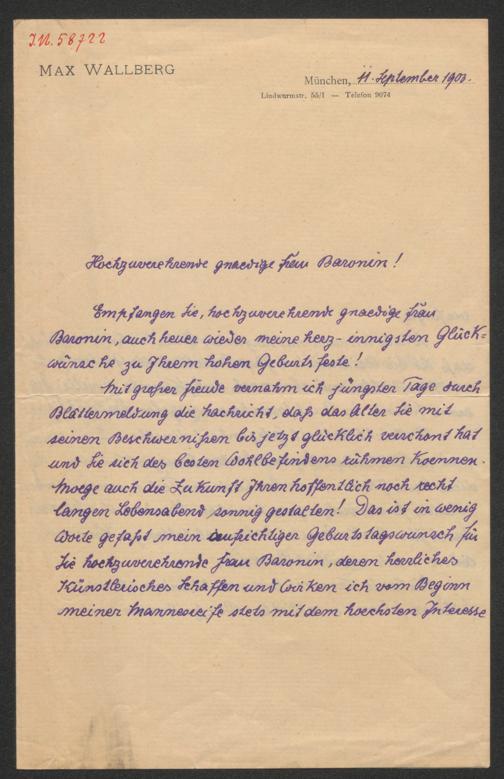 I.N. 58722
MAX WALLBERG
München, 11. September 1900.
Lindwurmstr. 55/I — Telefon 9074
Hochzuverehrende gnaedige Frau Baronin!
Empfangen Sie, hochzuverehrende gnaedige Frau
Baronin, auch heuer wieder meine herz-innigsten Glück=
wünsche zu Ihrem hohen Geburtsfeste!
Mit großer Freude vernahm ich jüngsten Tage durch
Blättermeldung die Nachricht, daß das Alter Sie mit
seinen Beschwernißen bis jetzt glücklich verschont hat
und Sie sich des besten Wohlbefindens rühmen Koennen.
Moege auch die Zukunft Ihren hoffentlich noch recht
langen Lebensabend sonnig gestalten! Das ist in wenig
Worte gefaßt mein aufrichtiger Geburtstagswunsch für
Sie hochzuverehrende Frau Baronin, deren herrliches
Künstlerisches Schaffen und Wirken ich vom Beginn
meiner Mannesreife stets mit dem hoechsten Interesse